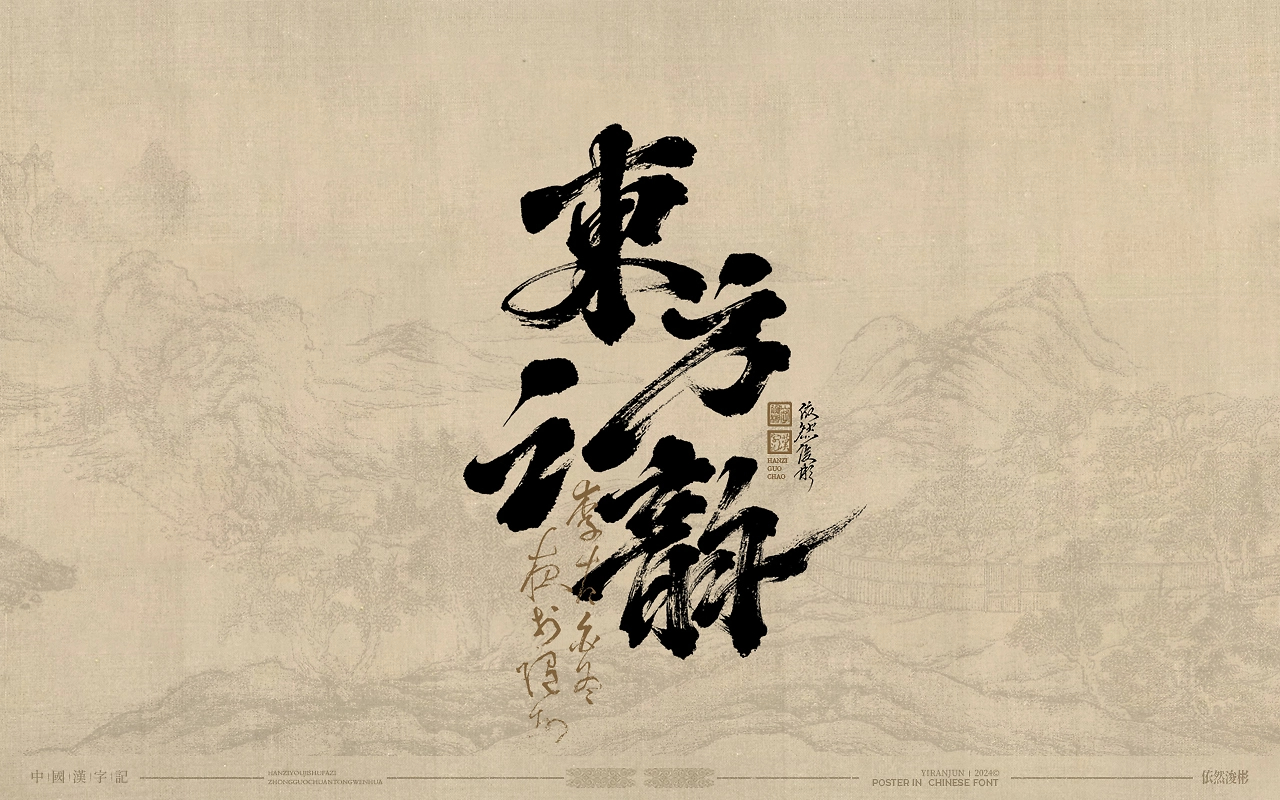 東方
之韵
依然浚彬
HANZI
GUO
CHAO
中|國|漢|字|記
HANZIYOUJISHUFAZI
ZHONGGUOCHUANTONGWENHUA
YIRANJUN | 2024©
POSTER IN CHINESE FONT
依然浚彬